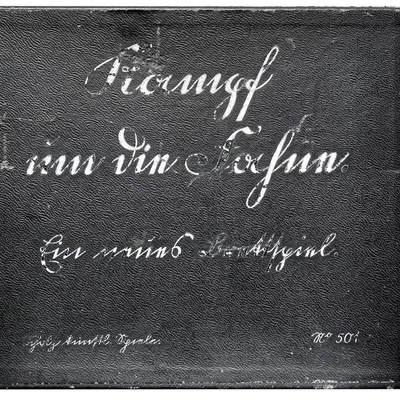 Kampf
um die Fahne.
Ein neues Brettspiel.
künstl. Spiele. Nº 501